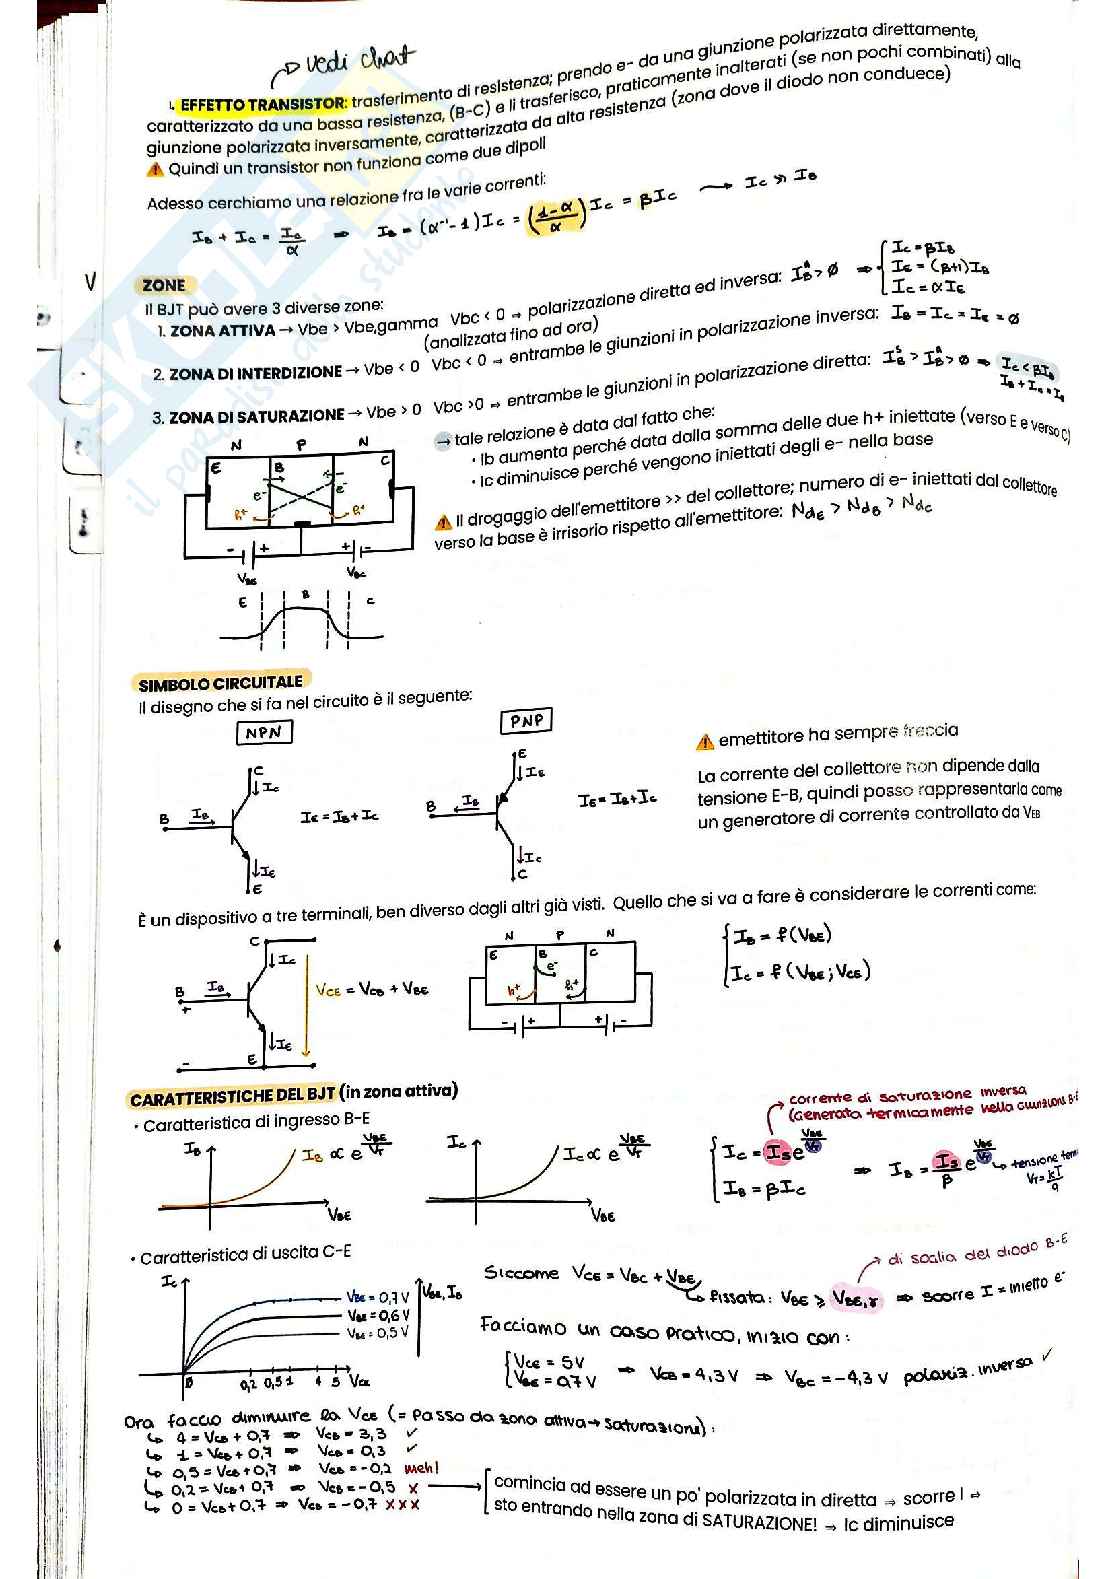 → vedi chat
↳ EFFETTO TRANSISTOR: trasferimento di resistenza; prendo e- da una giunzione polarizzata direttamente,
caratterizzato da una bassa resistenza, (B-C) e li trasferisco, praticamente inalterati (se non pochi combinati) alla
giunzione polarizzata inversamente, caratterizzata da alta resistenza (zona dove il diodo non conduece)
⚠ Quindi un transistor non funziona come due dipoli
Adesso cerchiamo una relazione fra le varie correnti:
I_B + I_C = I_C/α ⇒ I_B = (α⁻¹-1)I_C = ((1-α)/α) I_C = βI_C → I_C >> I_B
V
ZONE
Il BJT può avere 3 diverse zone:
1. ZONA ATTIVA → Vbe > Vbe,gamma Vbc < 0 → polarizzazione diretta ed inversa: I_B^A > 0 ⇒ { I_C = βI_B
I_E = (β+1)I_B
I_C = αI_E
(analizzata fino ad ora)
2. ZONA DI INTERDIZIONE → Vbe < 0 Vbc < 0 → entrambe le giunzioni in polarizzazione inversa: I_B = I_C = I_E = 0
3. ZONA DI SATURAZIONE → Vbe > 0 Vbc >0 → entrambe le giunzioni in polarizzazione diretta: I_B^S > I_B^A > 0 ⇒ I_C < βI_B
I_B + I_C = I_E
→ tale relazione è data dal fatto che:
• Ib aumenta perché data dalla somma delle due h+ iniettate (verso E e verso C)
• Ic diminuisce perché vengono iniettati degli e- nella base
⚠ Il drogaggio dell'emettitore >> del collettore; numero di e- iniettati dal collettore
verso la base è irrisorio rispetto all'emettitore: N_dE > N_dB > N_dC
N P N
E B C
e- e-
h+ h+
- + + -
V_BE V_BC
E B C
SIMBOLO CIRCUITALE
Il disegno che si fa nel circuito è il seguente:
NPN PNP
C I_C
B I_B I_E = I_B + I_C
I_E
E
E I_E
B I_B I_E = I_B + I_C
I_C
C
⚠ emettitore ha sempre freccia
La corrente del collettore non dipende dalla
tensione E-B, quindi posso rappresentarla come
un generatore di corrente controllato da VEB
È un dispositivo a tre terminali, ben diverso dagli altri già visti. Quello che si va a fare è considerare le correnti come:
C I_C
B I_B V_CE = V_CB + V_BE
+
- E I_E
N P N
E B C
e-
h+ h+
- + + -
{ I_B = f(V_BE)
I_C = f(V_BE; V_CE)
CARATTERISTICHE DEL BJT (in zona attiva)
• Caratteristica di ingresso B-E
I_B I_B ∝ e^(V_BE/V_T) V_BE
I_C I_C ∝ e^(V_BE/V_T) V_BE
corrente di saturazione inversa
(generata termicamente nella giunzione B-E
{ I_C = I_S e^(V_BE/V_T)
I_B = βI_C
⇒ I_B = I_S/β e^(V_BE/V_T) → tensione term
V_T = kT/q
• Caratteristica di uscita C-E
I_C V_BE, I_B
V_BE = 0,7V
V_BE = 0,6V
V_BE = 0,5V
0 0,2 0,5 1 4 5 V_CE
Siccome V_CE = V_BC + V_BE
→ di soglia del diodo B-E
↳ fissata: V_BE ≥ V_BE,γ ⇒ scorre I = inietto e-
Facciamo un caso pratico, inizio con:
{ V_CE = 5V
V_BE = 0,7V
⇒ V_CB = 4,3V ⇒ V_BC = -4,3V polariz. inversa ✓
Ora faccio diminuire la V_CE (= passo da zona attiva → saturazione):
↳ 4 = V_CB + 0,7 ⇒ V_CB = 3,3 ✓
↳ 1 = V_CB + 0,7 ⇒ V_CB = 0,3 ✓
↳ 0,5 = V_CB + 0,7 ⇒ V_CB = -0,2 meh!
↳ 0,2 = V_CB + 0,7 ⇒ V_CB = -0,5 x
↳ 0 = V_CB + 0,7 ⇒ V_CB = -0,7 x x x
[ comincia ad essere un po' polarizzata in diretta → scorre I →
sto entrando nella zona di SATURAZIONE! → Ic diminuisce